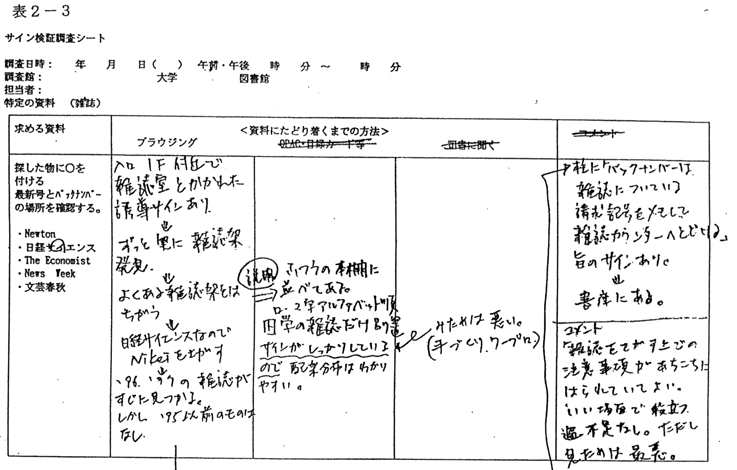 表2-3
サイン検証調査シート
調査日時： 年 月 日（ ） 午前・午後 時 分 ～ 時 分
調査館： 大学 図書館
担当者：
特定の資料 （雑誌）
求める資料
＜資料にたどり着くまでの方法＞
ブラウジング
OPAC・目録カード等
図書に聞く
コメント
探した物に○を
付ける
最新号とバックナンバー
の場所を確認する。
・Newton
・日経サイエンス
・The Economist
・News Week
・文芸春秋
入口 1F 付近で
雑誌室とかかれた
誘導サインあり
↓
ずっと奥に雑誌架
発見.
↓
よくある雑誌架とは
ちがう
↓
日経サイエンスなので
Nikeiをさがす
↓
'96. の雑誌が
すぐに見つかる。
しかし '95以前のものは
なし.
説明
ふつうの本棚に
並べてある。
ロ.2字アルファベット順
医学の雑誌だけ別置
サインがしっかりしている
ので 配架分布はわかり
やすい。
みためは悪い。
(手づくり,ワープロ)
柱に「バックナンバーは
雑誌についている
請求記号をメモして
雑誌カウンターへとどける」
旨のサインあり。
↓
書庫にある。
コメント
雑誌をさがす上での
注意事項があちこちに
はられていてよい。
いい場所で役立つ
過不足なし。ただし
見ためは最悪。